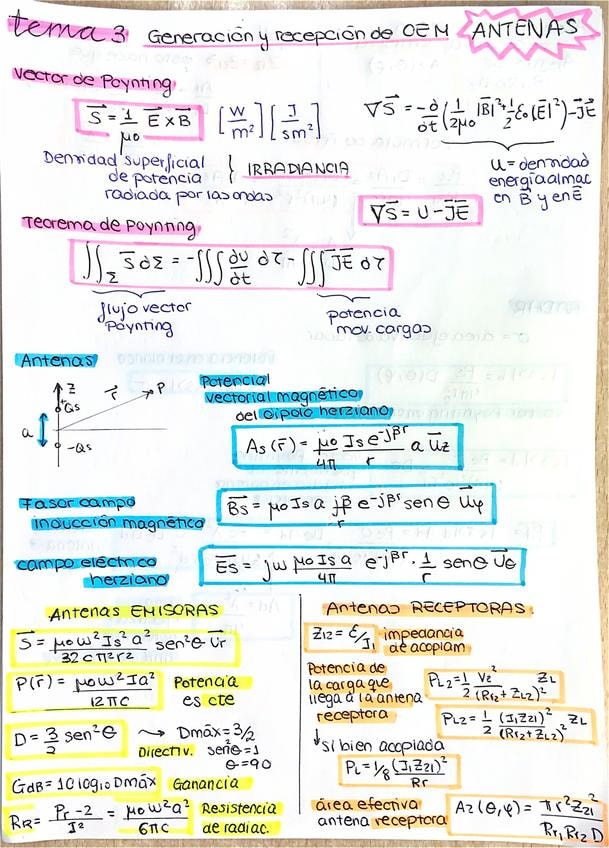 tema 3 Generación y recepción de OEM ANTENAS
Vector de Poynting
S⃗ = 1/μ0 E⃗ x B⃗ [W/m²] [J/sm²]
∇S⃗ = -∂/∂t (1/2μ0 |B⃗|² + 1/2 ε0 |E⃗|²) - J⃗E⃗
Densidad superficial
de potencia
radiada por las ondas
IRRADIANCIA
u = densidad
energía almac
en B⃗ y en E⃗
∇S⃗ = U - J⃗E⃗
Teorema de Poynting
∬Σ S⃗ dΣ = -∭ ∂u/∂t dτ - ∭ J⃗E⃗ dτ
flujo vector
Poynting
potencia
mov. cargas
Antenas
Z
r⃗
P
Qs
a
-Qs
Potencial
vectorial magnético
del dipolo herziano
As(r⃗) = μ0/4π Is e^-jβr/r a U⃗z
Fasor campo
inducción magnético
B⃗s = μ0 Is a jβ/r e^-jβr sen θ U⃗φ
campo eléctrico
herziano
E⃗s = jω μ0 Is a/4π e^-jβr · 1/r sen θ U⃗θ
Antenas EMISORAS
S⃗ = μ0 ω² Is² a²/32 c π² r² sen² θ U⃗r
P(r⃗) = μ0 ω² Ia²/12πc Potencia
es cte
D = 3/2 sen² θ → Dmáx = 3/2
Directiv. senθ = 1
θ = 90
GdB = 10 log10 Dmáx Ganancia
RR = Pr - 2/I² = μ0 ω² a²/6πc Resistencia
de radiac.
Antenas RECEPTORAS:
Z12 = ε/I1 impedancia
de acoplam
Potencia de
la carga que
llega a la antena
receptora
PL2 = 1/2 V2²/(Rr2 + ZL2)² ZL
PL2 = 1/2 (I1 Z21)²/(Rr2 + ZL2)² ZL
↓ si bien acoplada
PL = 1/8 (I1 Z21)²/Rr
área efectiva
antena receptora
A2(θ,φ) = π r² Z21²/Rr1 Rr2 D